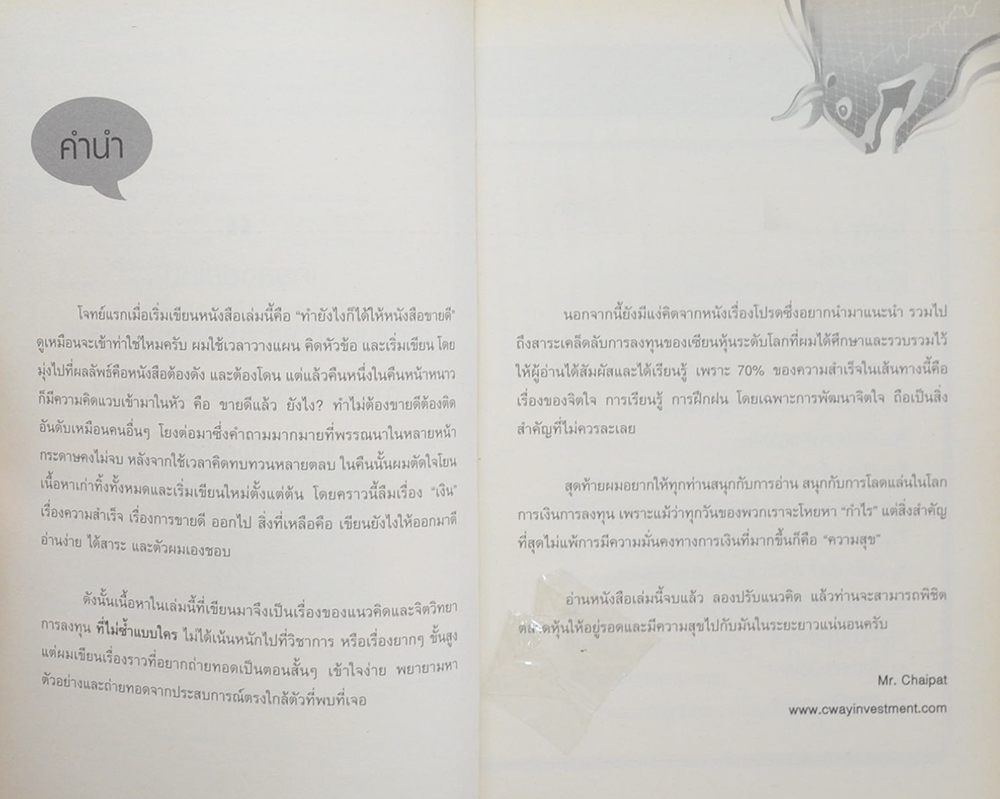 คำนำ
โจทย์แรกเมื่อเริ่มเขียนหนังสือเล่มนี้คือ “ทำยังไงก็ได้ให้หนังสือขายดี”
ดูเหมือนจะเข้าท่าใช่ไหมครับ ผมใช้เวลาวางแผน คิดหัวข้อ และเริ่มเขียน โดย
มุ่งไปที่ผลลัพธ์คือหนังสือต้องดัง และต้องโดน แต่แล้วคืนหนึ่งในคืนหน้าหนาว
ก็มีความคิดแวบเข้ามาในหัว คือ ขายดีแล้ว ยังไง? ทำไมต้องขายดีต้องติด
อันดับเหมือนคนอื่นๆ โยงต่อมาซึ่งคำถามมากมายที่พรรณนาในหลายหน้า
กระดาษคงไม่จบ หลังจากใช้เวลาคิดทบทวนหลายตลบ ในคืนนั้นผมตัดใจโยน
เนื้อหาเก่าทิ้งทั้งหมดและเริ่มเขียนใหม่ตั้งแต่ต้น โดยคราวนี้ลืมเรื่อง “เงิน”
เรื่องความสำเร็จ เรื่องการขายดี ออกไป สิ่งที่เหลือคือ เขียนยังไงให้ออกมาดี
อ่านง่าย ได้สาระ และตัวผมเองชอบ
ดังนั้นเนื้อหาในเล่มนี้ที่เขียนมาจึงเป็นเรื่องของแนวคิดและจิตวิทยา
การลงทุน ที่ไม่ซ้ำแบบใคร ไม่ได้เน้นหนักไปที่วิชาการ หรือเรื่องยากๆ ขั้นสูง
แต่ผมเขียนเรื่องราวที่อยากถ่ายทอดเป็นตอนสั้นๆ เข้าใจง่าย พยายามหา
ตัวอย่างและถ่ายทอดจากประสบการณ์ตรงใกล้ตัวที่พบที่เจอ
นอกจากนี้ยังมีแง่คิดจากหนังเรื่องโปรดซึ่งอยากนำมาแนะนำ รวมไป
ถึงสาระเคล็ดลับการลงทุนของเซียนหุ้นระดับโลกที่ผมได้ศึกษาและรวบรวมไว้
ให้ผู้อ่านได้สัมผัสและได้เรียนรู้ เพราะ 70% ของความสำเร็จในเส้นทางนี้คือ
เรื่องของจิตใจ การเรียนรู้ การฝึกฝน โดยเฉพาะการพัฒนาจิตใจ ถือเป็นสิ่ง
สำคัญที่ไม่ควรละเลย
สุดท้ายผมอยากให้ทุกท่านสนุกกับการอ่าน สนุกกับการโลดแล่นในโลก
การเงินการลงทุน เพราะแม้ว่าทุกวันของพวกเราจะโหยหา “กำไร” แต่สิ่งสำคัญ
ที่สุดไม่แพ้การมีความมั่นคงทางการเงินที่มากขึ้นก็คือ “ความสุข”
อ่านหนังสือเล่มนี้จบแล้ว ลองปรับแนวคิด แล้วท่านจะสามารถพิชิต
ตลาดหุ้นให้อยู่รอดและมีความสุขไปกับมันในระยะยาวแน่นอนครับ
Mr. Chaipat
www.cwayinvestment.com